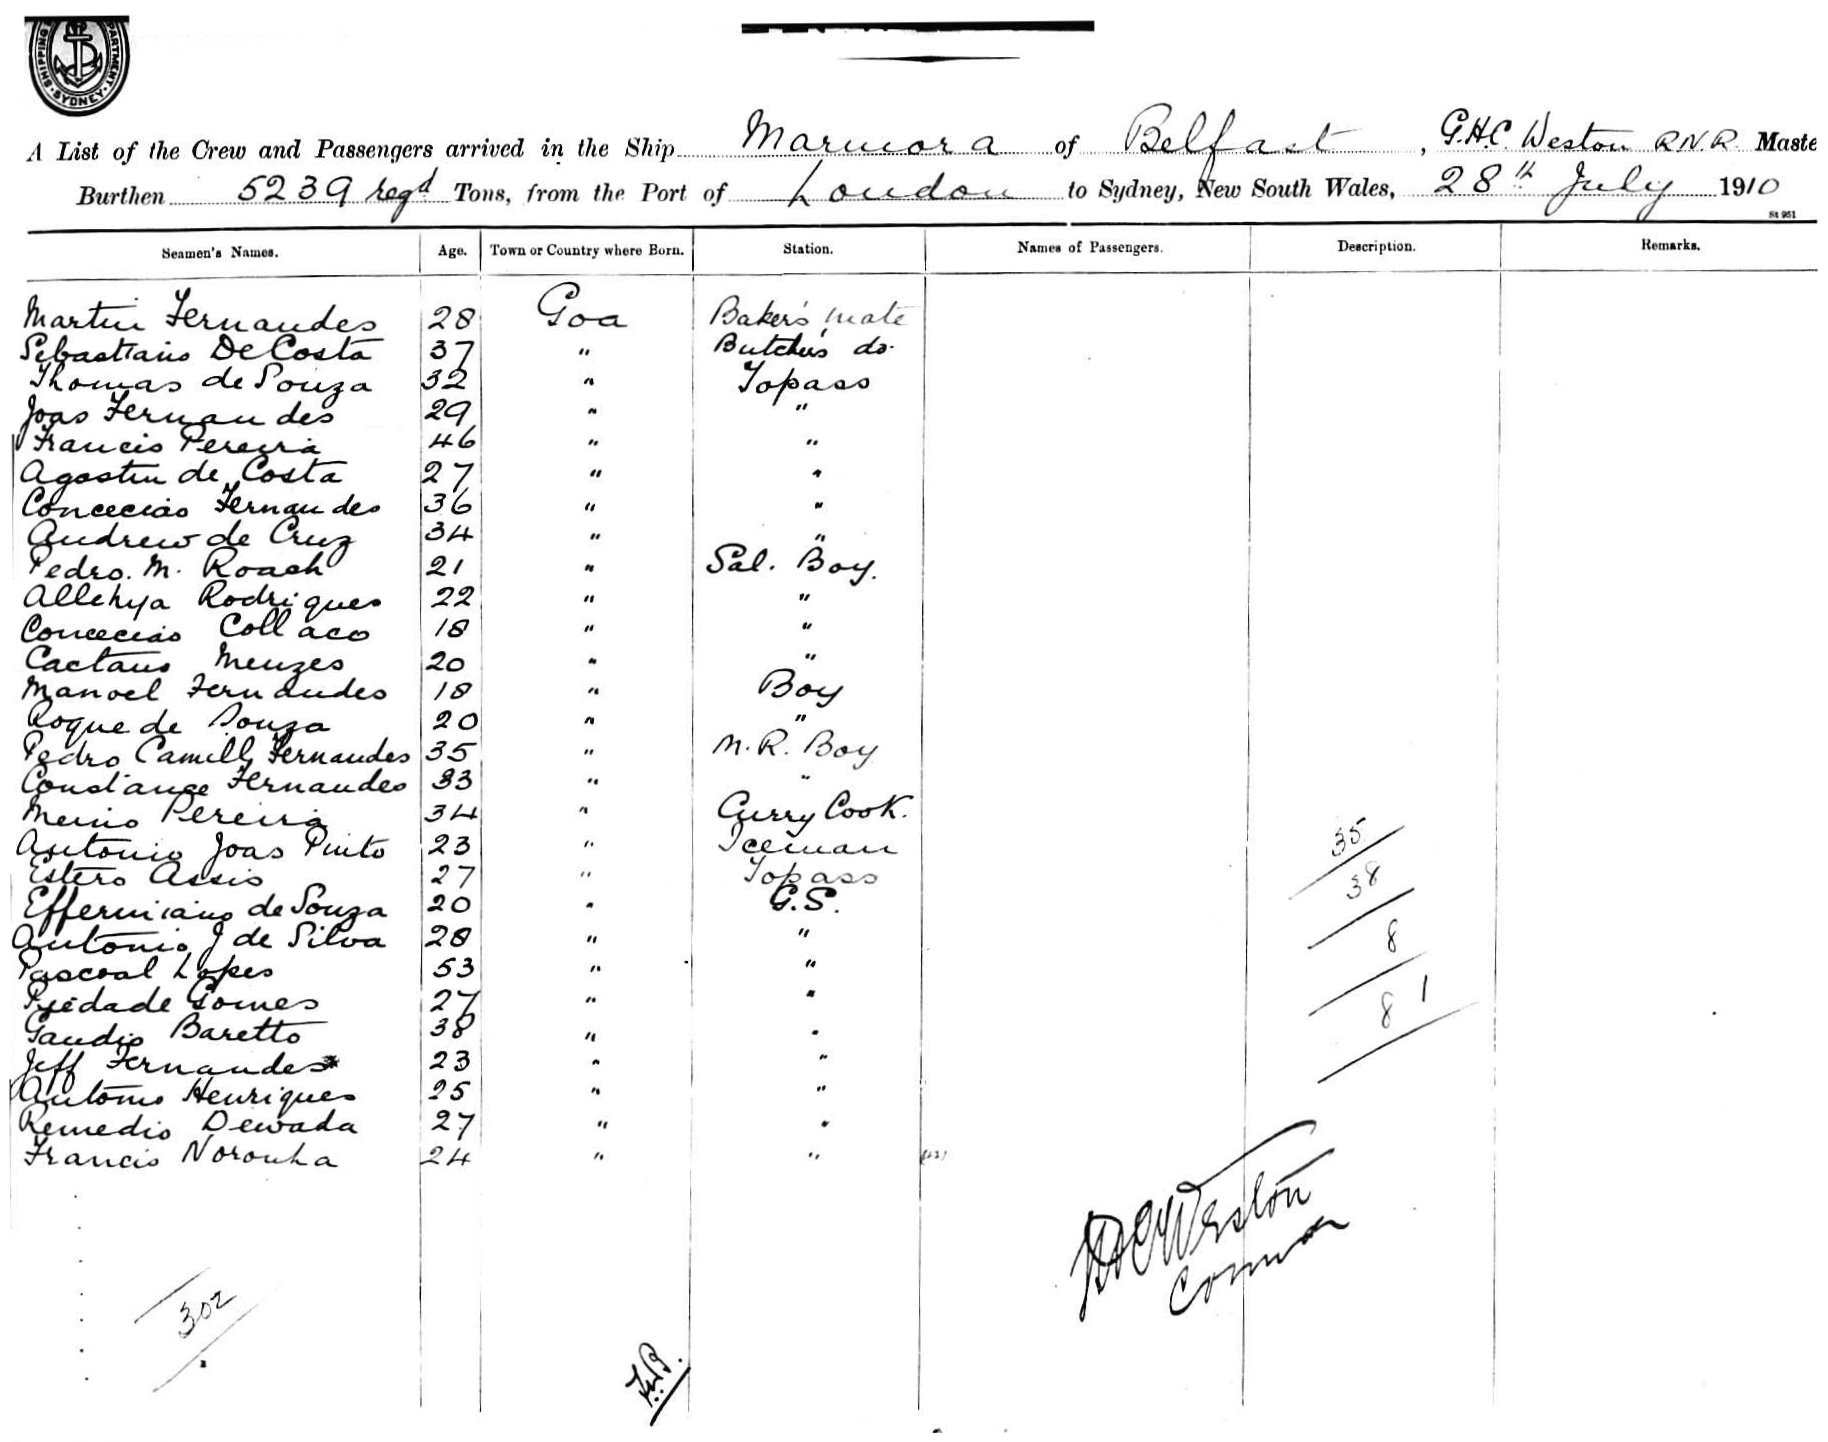 SHIPPING DEPARTMENT. SYDNEY.
A List of the Crew and Passengers arrived in the Ship Marmora of Belfast, G.H.C. Weston R.N.R. Maste
Burthen 5239 regd Tons, from the Port of London to Sydney, New South Wales, 28th July 1910
St 951
Seamen's Names. Age. Town or Country where Born. Station. Names of Passengers. Description. Remarks.
Martin Fernandes 28 Goa Baker's mate
Sebastiaio De Costa 37 " Butcher's do.
Thomas de Souza 32 " Topass
Joao Fernandes 29 " "
Francis Pereira 46 " "
Agostin de Costa 27 " "
Conceciao Fernandes 36 " "
Andrew de Cruz 34 " "
Pedro. M. Roach 21 " Sal. Boy.
Allehya Rodrigues 22 " "
Conceciao Collaco 18 " "
Caetano Menzes 20 " "
Manoel Fernandes 18 " Boy
Roque de Souza 20 " "
Pedro Camill Fernandes 35 " M.R. Boy
Constance Fernandes 33 " "
Menio Pereira 34 " Curry Cook.
Antonio Joao Pinto 23 " Iceman
Estero Assis 27 " Topass
Efferniano de Souza 20 " G.S.
Antonio J de Silva 28 " "
Pascoal Lopes 53 " "
Piedade Gomes 27 " "
Gaudio Baretto 38 " "
Jeff Fernandes 23 " "
Antonio Henriques 25 " "
Remedio Dewada 27 " "
Francis Noronha 24 " "
35
38
8
81
GHCWeston
302